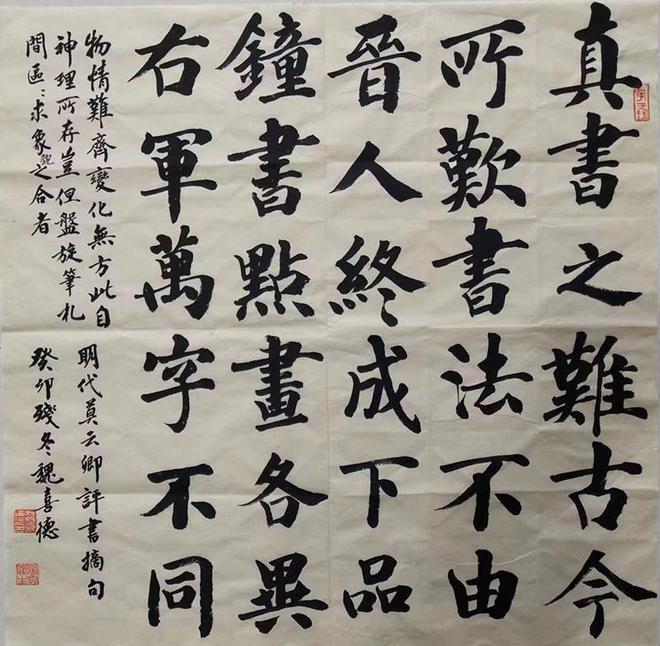 真書之難古今
所歎書法不由
晉人終成下品
鐘書點畫各異
右軍萬字不同
物情難齊變化無方此自
神理所存豈但盤旋筆札
間區〻求象貌之合者
明代莫云卿評書摘句
癸卯殘冬魏喜德